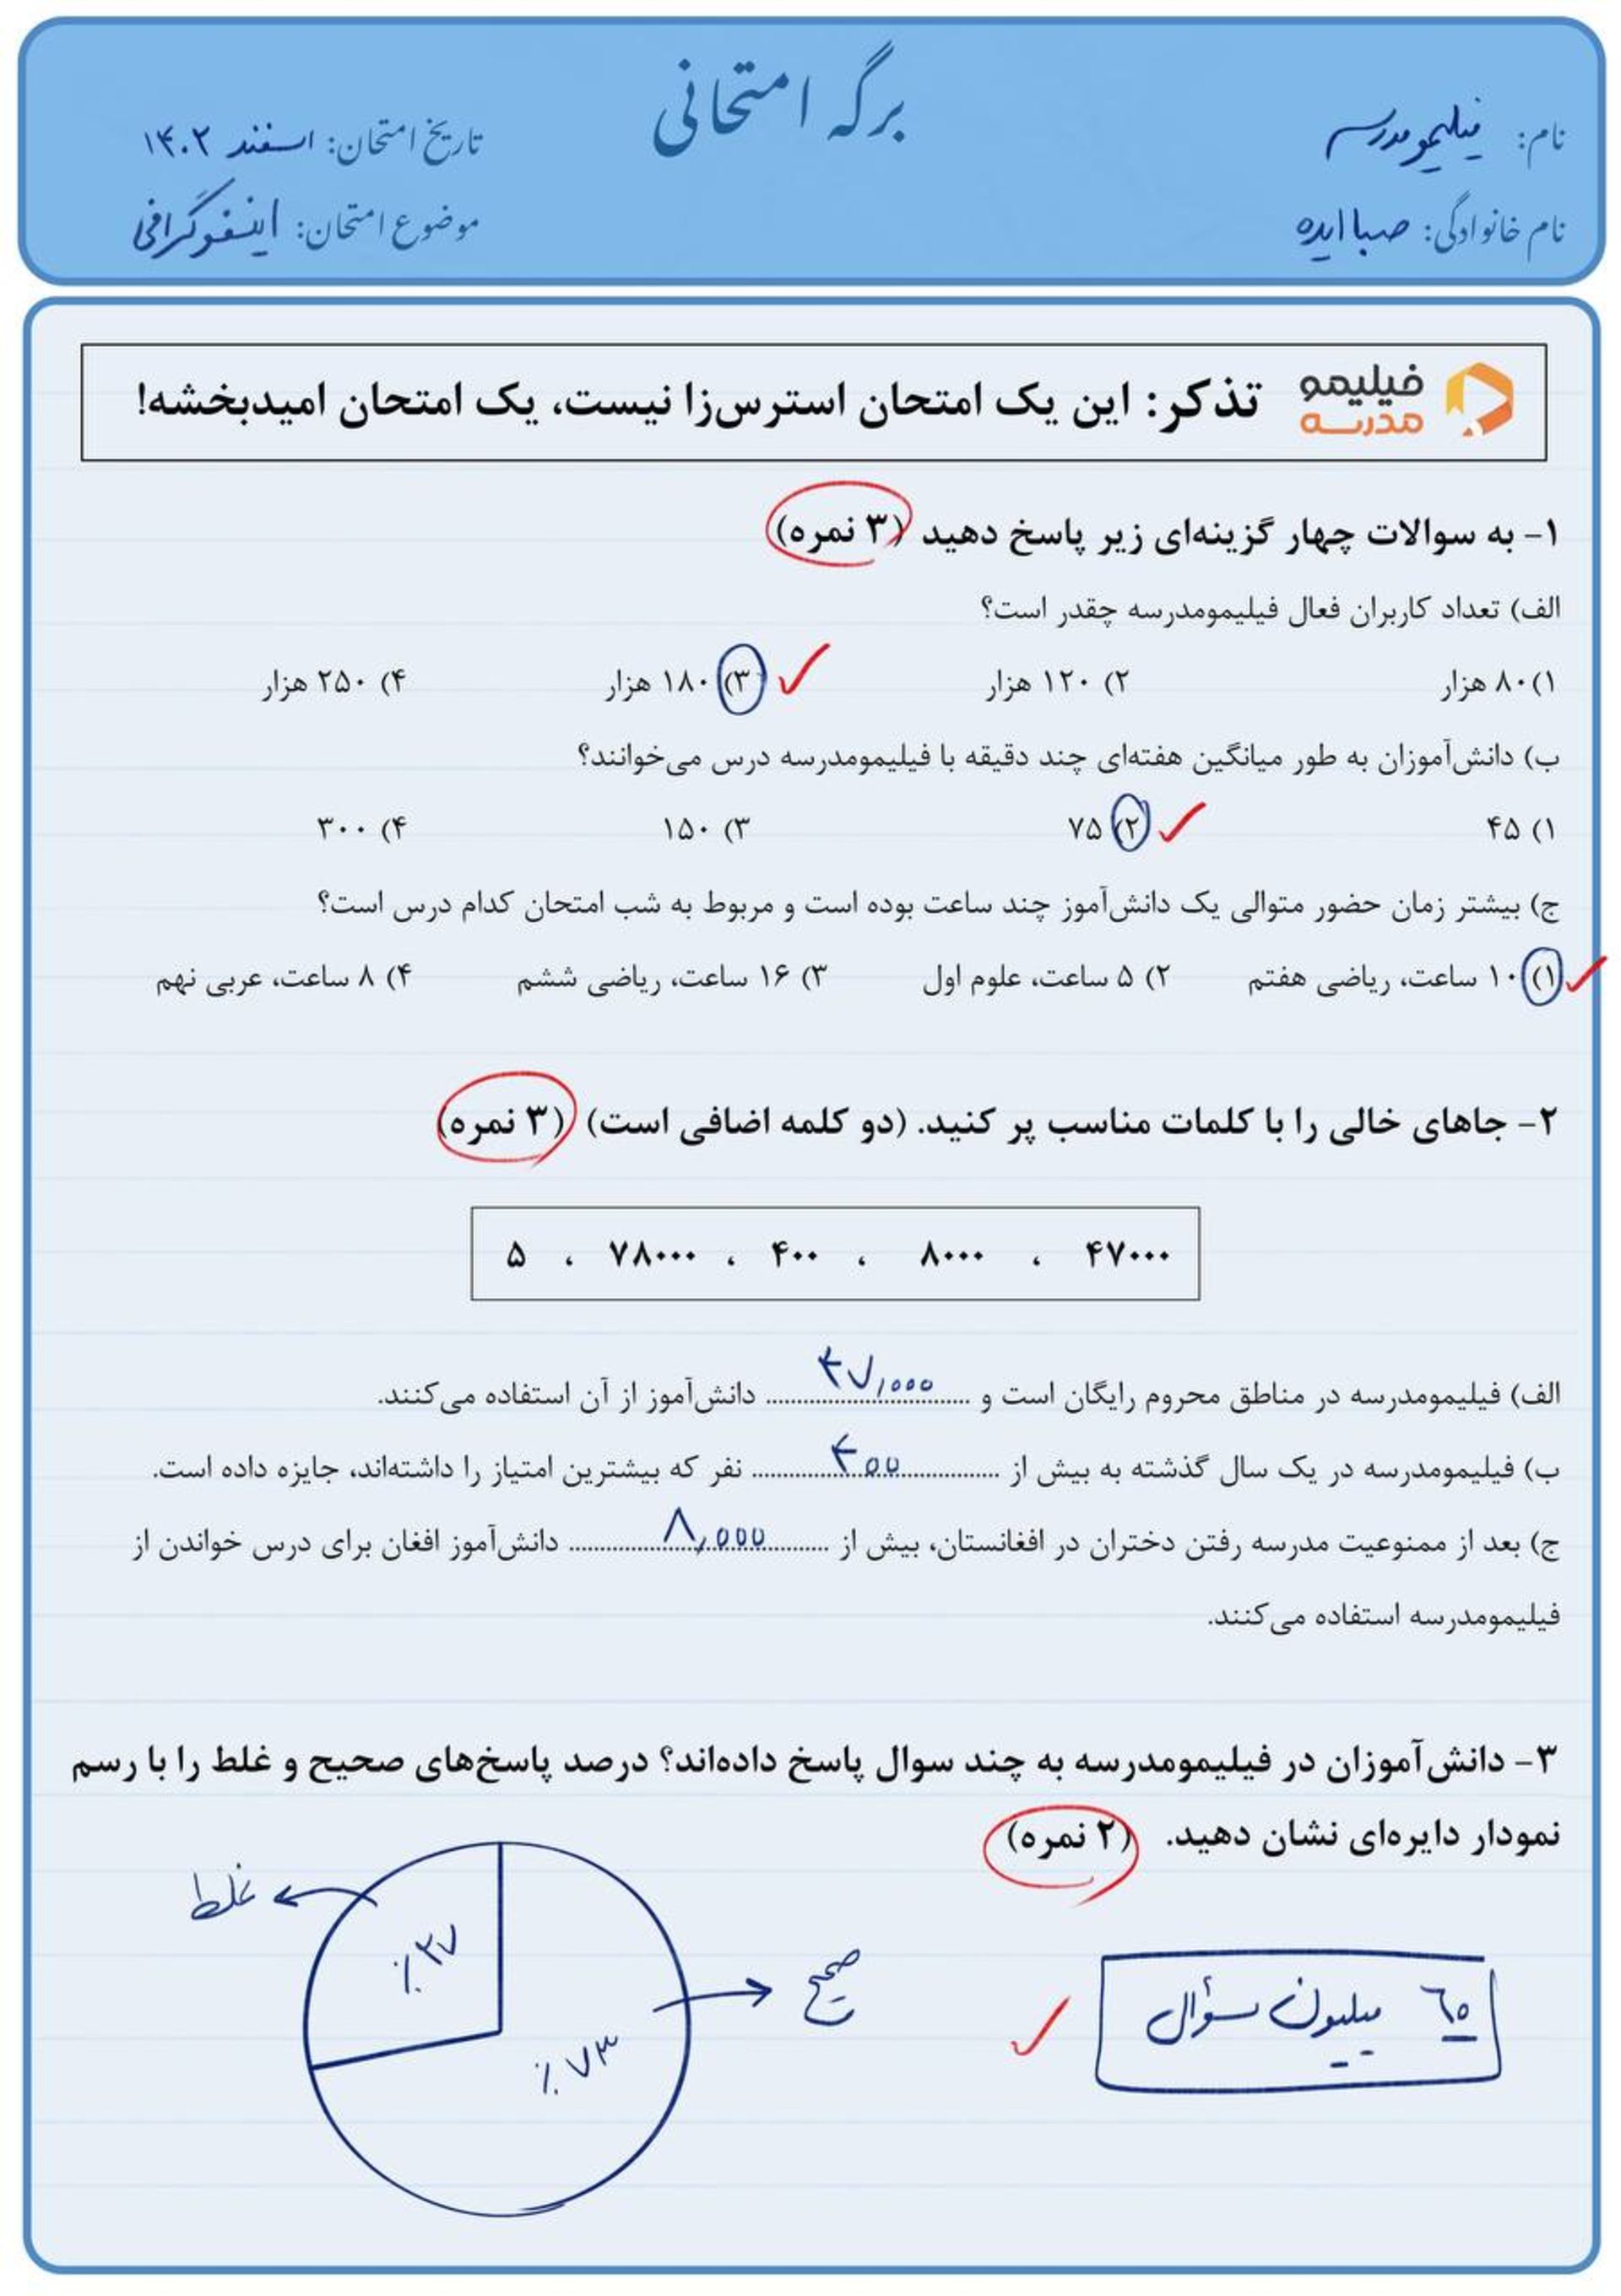 برگه امتحانی
نام: فیلیمومدرسه
تاریخ امتحان: اسفند ۱۴۰۲
نام خانوادگی: صبا ایده
موضوع امتحان: اینفوگرافی
فیلیمو مدرسه
تذکر: این یک امتحان استرس‌زا نیست، یک امتحان امیدبخشه!
۱- به سوالات چهار گزینه‌ای زیر پاسخ دهید (۳ نمره)
الف) تعداد کاربران فعال فیلیمومدرسه چقدر است؟
۱) ۸۰ هزار ۲) ۱۲۰ هزار ۳) ۱۸۰ هزار ۴) ۲۵۰ هزار
ب) دانش‌آموزان به طور میانگین هفته‌ای چند دقیقه با فیلیمومدرسه درس می‌خوانند؟
۱) ۴۵ ۲) ۷۵ ۳) ۱۵۰ ۴) ۳۰۰
ج) بیشتر زمان حضور متوالی یک دانش‌آموز چند ساعت بوده است و مربوط به شب امتحان کدام درس است؟
۱) ۱۰ ساعت، ریاضی هفتم ۲) ۵ ساعت، علوم اول ۳) ۱۶ ساعت، ریاضی ششم ۴) ۸ ساعت، عربی نهم
۲- جاهای خالی را با کلمات مناسب پر کنید. (دو کلمه اضافی است) (۳ نمره)
۴۷۰۰۰ ، ۸۰۰۰ ، ۴۰۰ ، ۷۸۰۰۰ ، ۵
الف) فیلیمومدرسه در مناطق محروم رایگان است و ۴۷,۰۰۰ دانش‌آموز از آن استفاده می‌کنند.
ب) فیلیمومدرسه در یک سال گذشته به بیش از ۴۰۰ نفر که بیشترین امتیاز را داشته‌اند، جایزه داده است.
ج) بعد از ممنوعیت مدرسه رفتن دختران در افغانستان، بیش از ۸,۰۰۰ دانش‌آموز افغان برای درس خواندن از
فیلیمومدرسه استفاده می‌کنند.
۳- دانش‌آموزان در فیلیمومدرسه به چند سوال پاسخ داده‌اند؟ درصد پاسخ‌های صحیح و غلط را با رسم
نمودار دایره‌ای نشان دهید. (۲ نمره)
۶۵ میلیون سؤال
صحیح
٪۷۳
٪۲۷
غلط